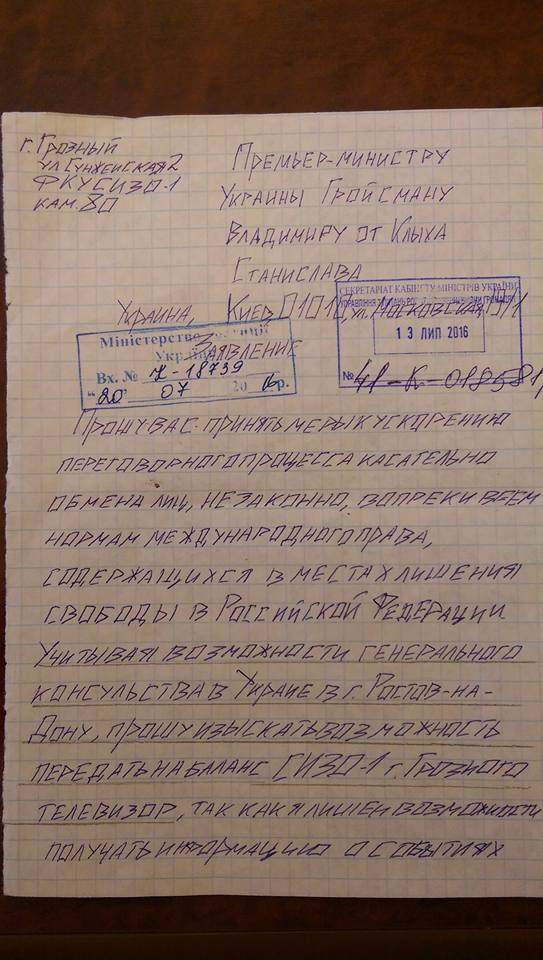 г. Грозный
ул Сунженская 2
ФКУ СИЗО-1
кам. 80
Премьер-министру
Украины Гройсману
Владимиру от Клыха
Станислава
Украина, Киев 01010, ул. Московская
СЕКРЕТАРІАТ КАБІНЕТУ МІНІСТРІВ УКРАЇНИ
13 ЛИП 2016
№ 41-К-018581/
Міністерство юстиції
України
Вх. № К-18739
"20" 07 2016р.
Заявление
Прошу вас принять меры к ускорению
переговорного процесса касательно
обмена лиц, незаконно, вопреки всем
нормам международного права,
содержащихся в местах лишения
свободы в Российской Федерации
Учитывая возможности генерального
консульства в Украие в г. Ростов-на-
Дону, прошу изыскать возможность
передать на баланс СИЗО-1 г. Грозного
телевизор, так как я лишен возможности
получать информацию о событиях